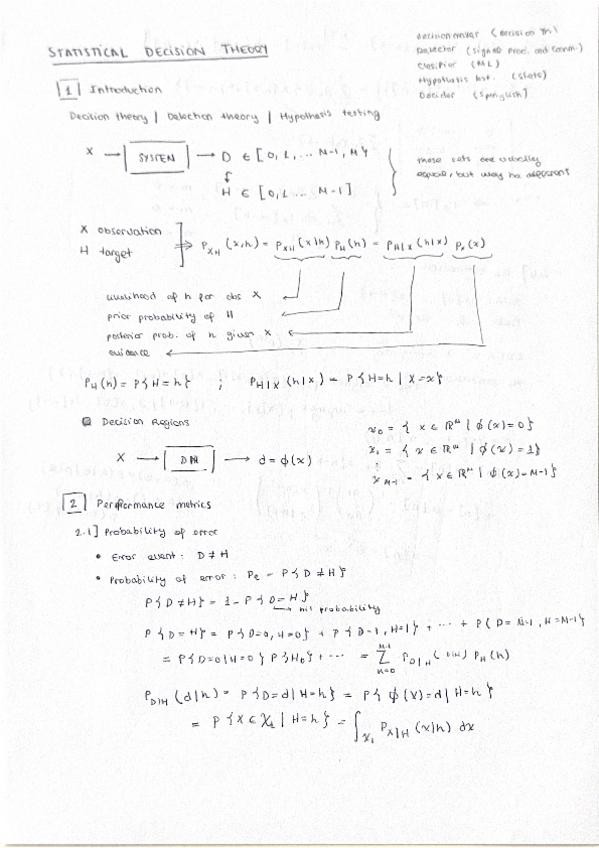 STATISTICAL DECISION THEORY
Decision maker (Decision Th.)
Detector (Signal Proc. and Comm.)
Classifier (ML)
Hypothesis test. (Stats)
Decider (Spanglish)
1 Introduction
Decision theory | Detection theory | Hypothesis testing
X → SYSTEM → D ∈ [0, 1, ... M-1, M}
H ∈ [0, 1 ... M-1]
these sets are usually
equal, but may be different
X observation
H target
⇒ P_XH (x,h) = P_X|H (x|h) P_H(h) = P_H|X (h|x) P_X(x)
likelihood of h for obs X
prior probability of H
posterior prob. of h given X
evidence
P_H(h) = P{H=h} ; P_H|X (h|x) = P{H=h | X=x}
Decision Regions
X → DM → d = ϕ(x)
X_0 = { x ∈ ℝ^n | ϕ(x)=0}
X_1 = { x ∈ ℝ^n | ϕ(x)=1}
X_M-1 = { x ∈ ℝ^n | ϕ(x)=M-1}
2 Performance metrics
2.1] Probability of error
• Error event: D ≠ H
• Probability of error: Pe = P{D ≠ H}
P{D ≠ H} = 1 - P{D=H}
hit probability
P{D=H} = P{D=0, H=0} + P{D=1, H=1} + ... + P{D=M-1, H=M-1}
= P{D=0|H=0} P{H=0} + ... = Σ_{h=0}^{M-1} P_D|H (h|h) P_H(h)
P_D|H (d|h) = P{D=d|H=h} = P{ϕ(X)=d|H=h}
= P{X ∈ X_d | H=h} = ∫_{X_d} P_X|H (x|h) dx